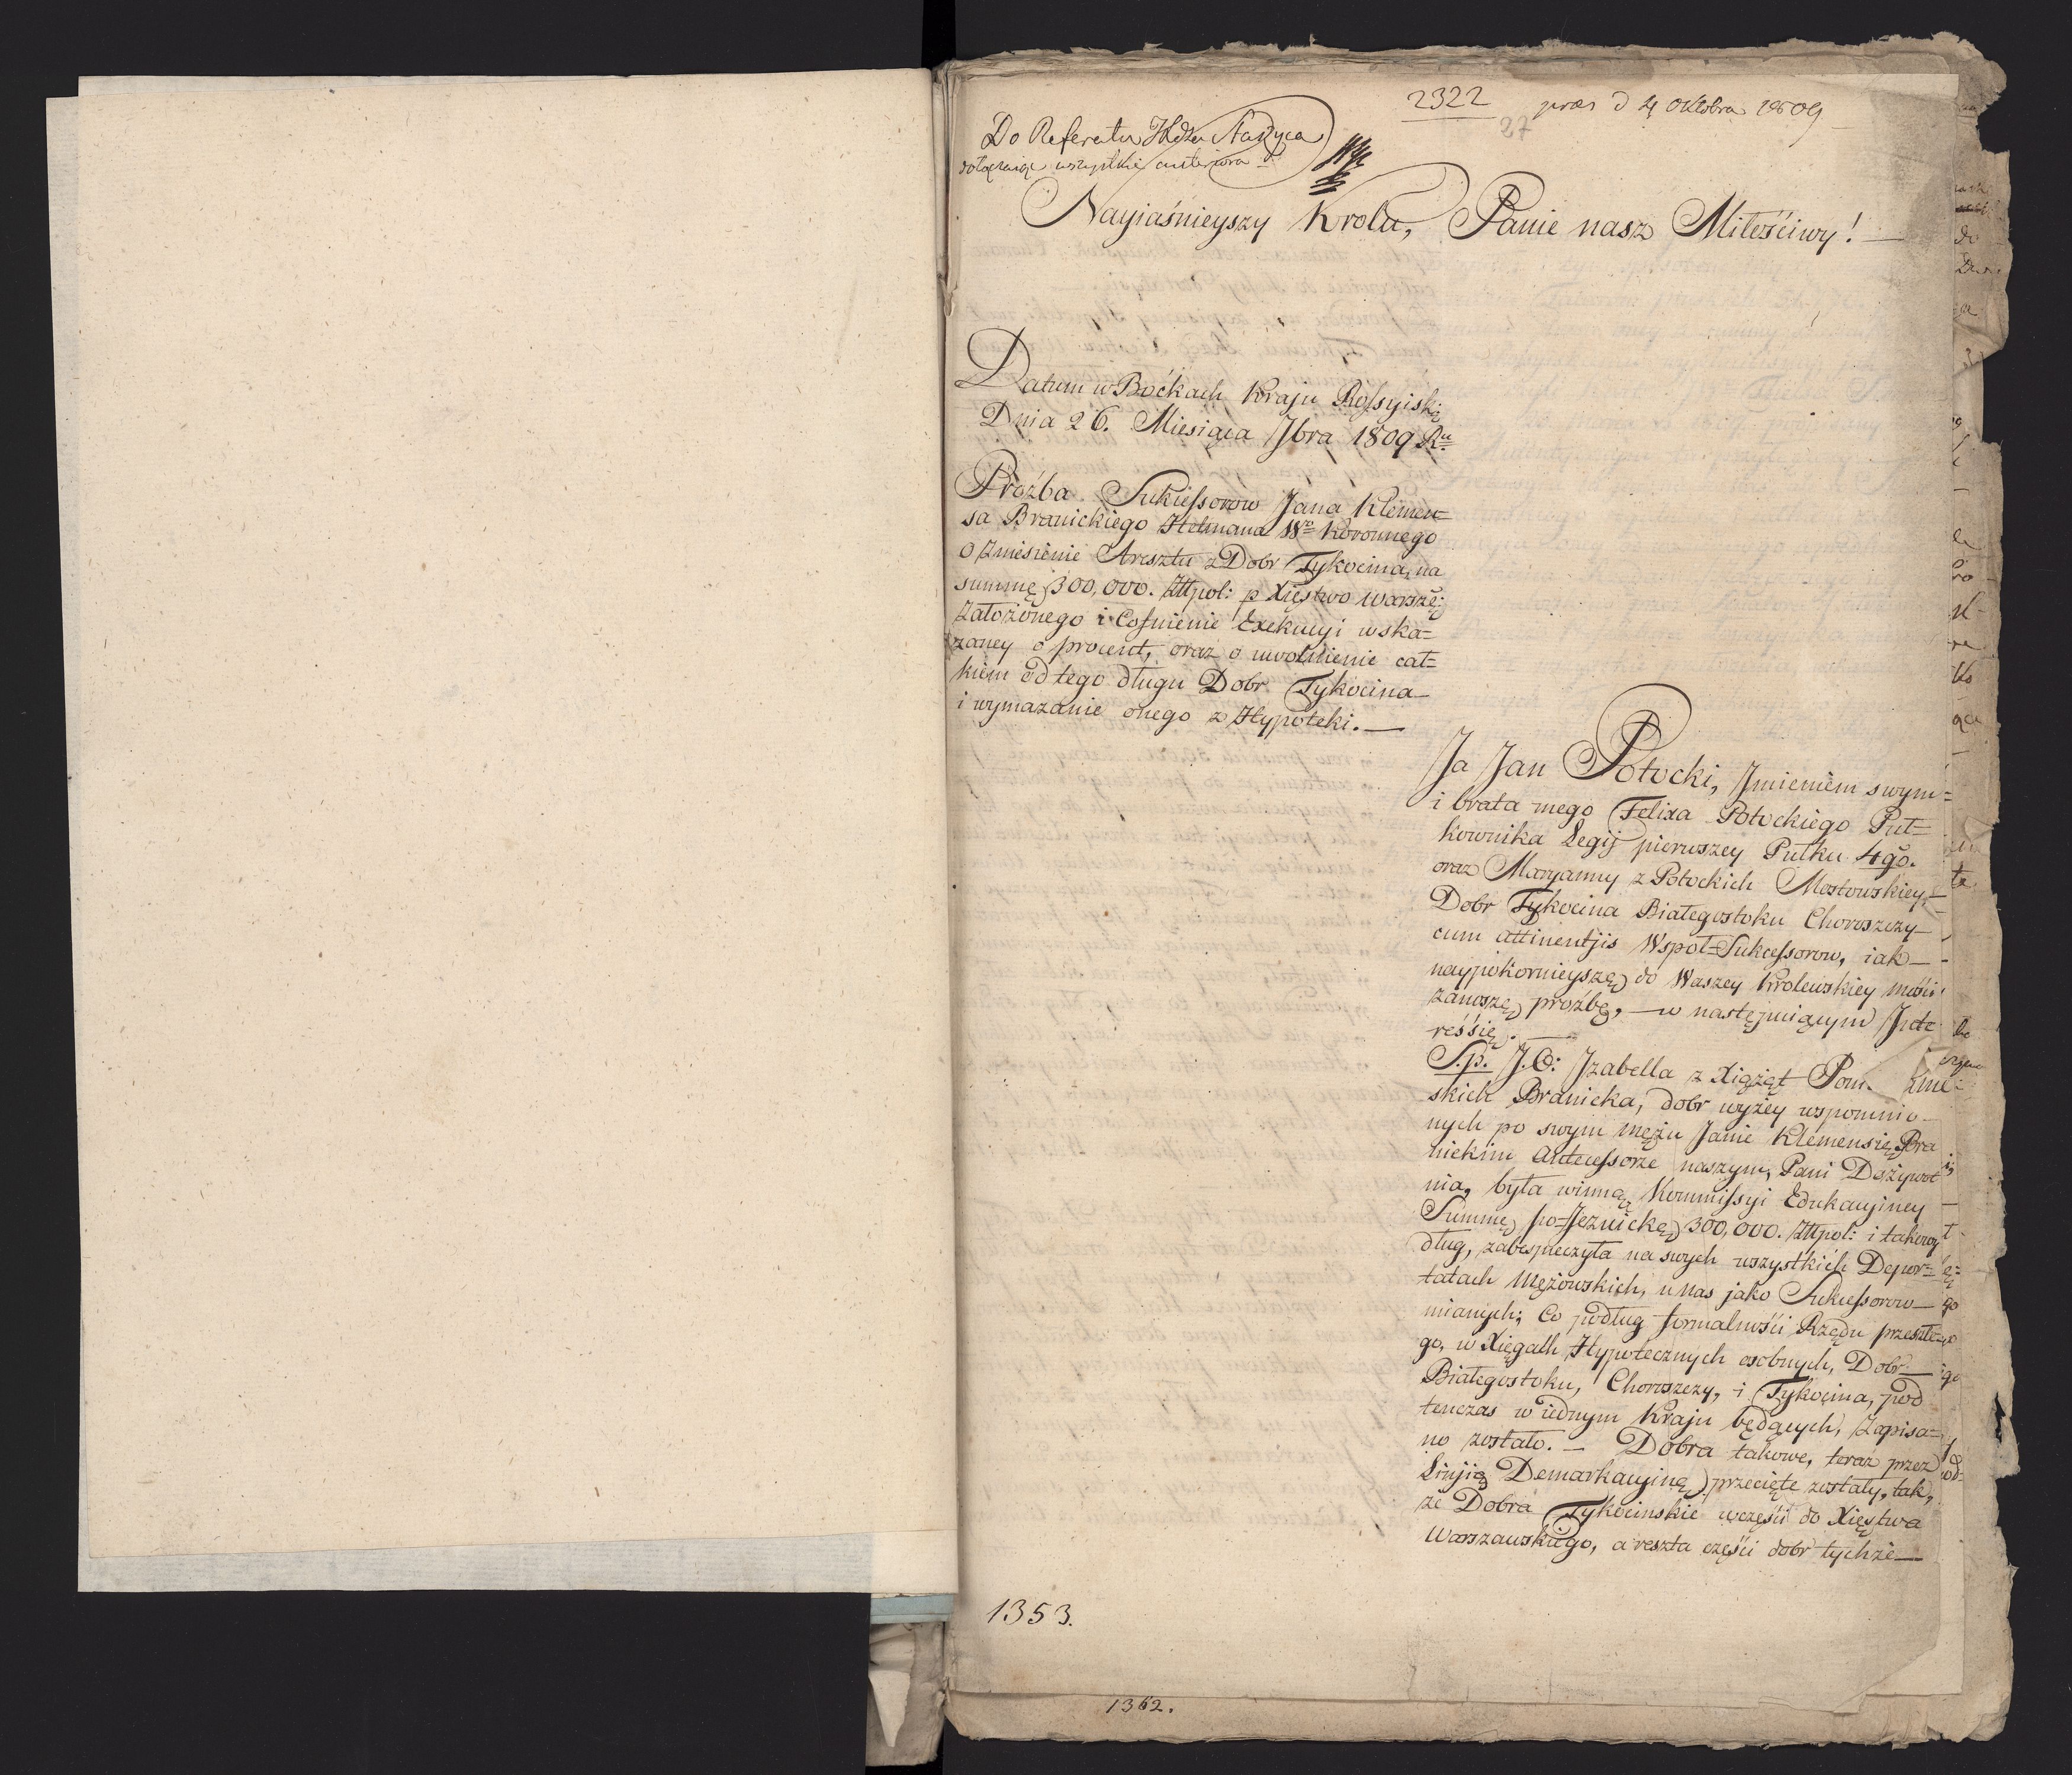 2322 præs d 4 Oktobra 1809
27
Do Referatu
dołączając wszystkie anteriora
Nayiaśnieyszy Krolu, Panie nasz Miłościwy! —
Datum w Boćkach Kraju Rossyiskią
Dnia 26. Miesiąca 7bra 1809 Ru.
Proźba Sukcessorow Jana Klemen=
sa Branickiego Hetmana Wo Koronnego
o Zniesienie Aresztu z Dobr Tykocina, na
summę 300,000. Złłpol: p Xięstwo Warszę:
Założonego i Cofnienie Exekucyi wska=
zaney o procent, oraz o uwolnienie cał=
kiem od tego długu Dobr Tykocina
i wymazanie onego z Hypoteki. —
Ja Jan Potocki, Jmieniem swym=
i brata mego Felixa Potockiego Puł=
kownika Legij pierwszey Pułku 4go.
oraz Maryanny z Potockich Mostowskiey,
Dobr Tykocina Białegostoku Choroszczy
cum attinentjis Wspoł=Sukcessorow, iak —
naypokornieyszę do Waszey Krolewskiey Mości
zanoszę proźbę, — w następuiącym Jnte
ressię. —
S.p. J.O: Jzabella z Xiążąt
skich Branicka, dobr wyżey wspomnio
nych po swym mężu Janie Klemensię Bra
nickim Antecessorze naszym, Pani Dożywot
nia, była winną Kommissyi Edukacyiney
Summę po=Jezuicką 300,000. Złłpol: i takowy
dług, zabespieczyła na swych wszystkich Depor=
tatach Mężowskich, u nas jako Sukcessorow
mianych; Co podług formalności Rządu przeszłe
go, w Xięgach Hypotecznych osobnych, Dobr —
Białegostoku, Choroszczy, i Tykocina, pod
tenczas w iednym Kraju będących, Zapisa=
no zostało. — Dobra takowe, teraz przez
Linjią Demarkacyiną przecięte zostały, tak,
że Dobra Tykocinskie wczęści do Xięstwa
Warszawskiego, a reszta części dobr tychże —
1353.
1362.